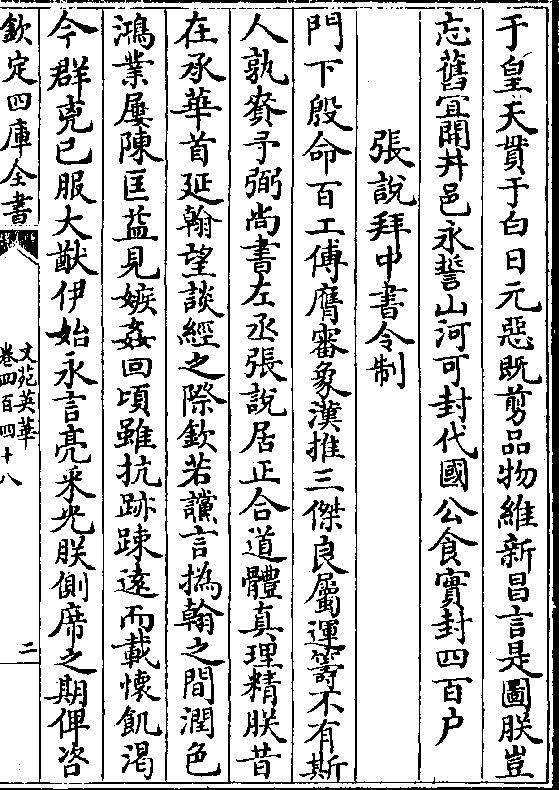 于皇天貫于白日元惡既剪品物維新昌言是圖朕豈
忘舊宜開井邑永誓山河可封代國公食實封四百户
張說拜中書令制
門下殷命百工傅膺審象漢推三傑良屬運籌不有斯
人孰賚予弼尚書左丞張說居正合道體真理精朕昔
在承華首延翰望談經之際欽若讜言撝翰之間潤色
鴻業屢陳匡益見嫉姦回頃雖抗跡疎遠而載懷飢渴
今羣兇已服大猷伊始永言亮采光朕側席之期俾咨
欽定四庫全書
文苑英華
卷四百四十八
二